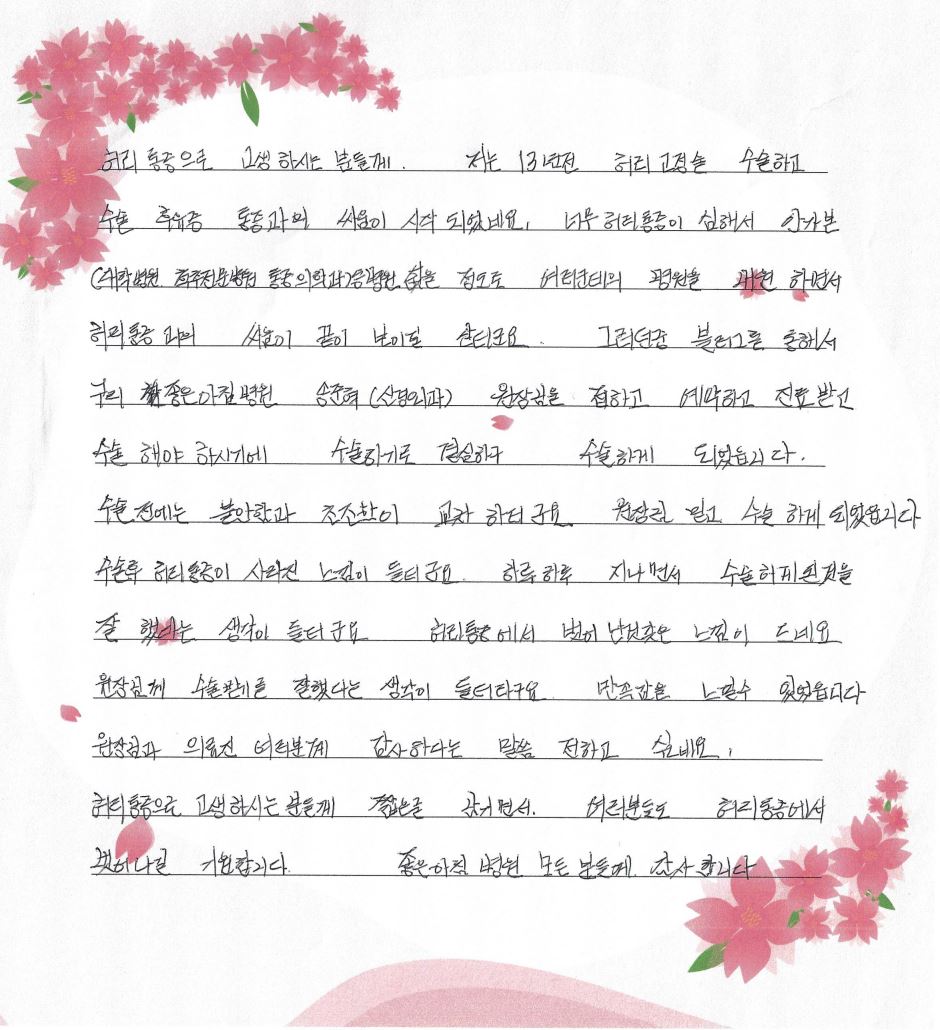 허리통증으로 고생하시는 분들께. 저는 13년전 허리 고정술 수술하고
수술 후유증 통증과의 싸움이 시작 되었네요, 너무 허리통증이 심해서 안가본
(대학병원 척추전문병원 통증의학과)등병원 없을 정도로 여러군데의 병원을 내원 하면서
허리통증과의 싸움이 끝이 보이질 않더군요. 그러던중 블러그를 통해서
구리 좋은아침병원 송준혁(신경외과) 원장님을 접하고 예약하고 진료받고
수술 해야 하시기에 수술하기로 결심하구 수술하게 되었읍니다.
수술전에는 불안함과 초조함이 교차 하더군요 원장님 믿고 수술 하게 되었읍니다
수술후 허리통증이 사라진 느낌이 들더군요. 하루하루 지나면서 수술하게된것을
잘 했다는 생각이 들더군요 허리통증에서 벗어 난것같은 느낌이 드네요
원장님께 수술받기를 잘했다는 생각이 들더라구요. 만족감을 느낄수 있었읍니다
원장님과 의료진 여러분께 감사하다는 말씀 전하고 싶네요,
허리통증으로 고생하시는 분들께 짧은글 남기면서. 여러분도 허리통증에서
벗어나길 기원합니다. 좋은아침 병원 모든 분들께 감사합니다